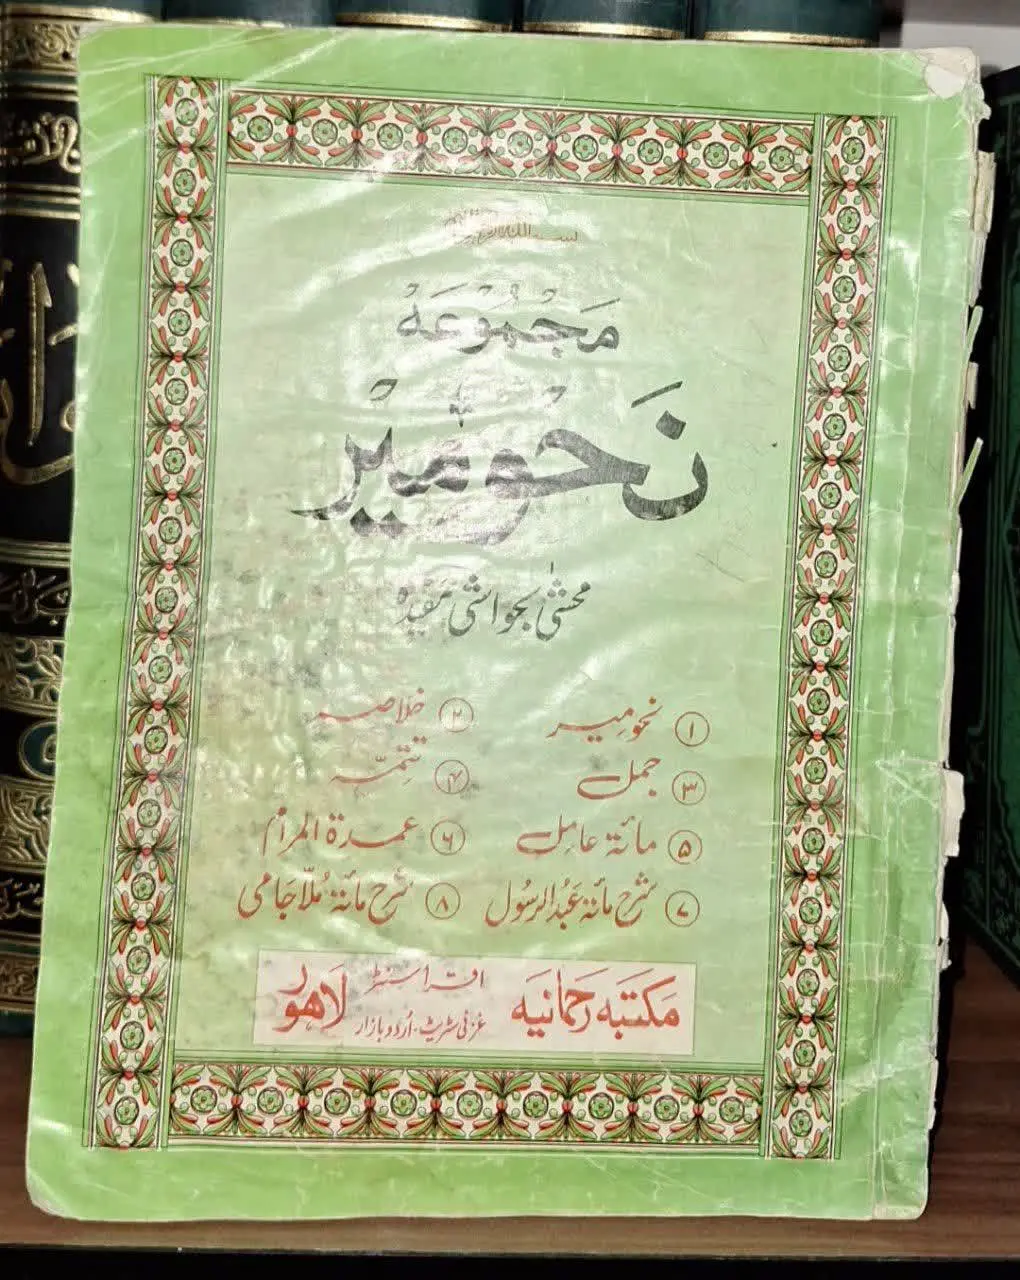 بسم الله الرحمن الرحیم
مَجْمُوْعَهْ
نَحْوِمِیْر
محشیٰ بحواشی مفیده
① نحومیر ② خلاصہ
③ جمل ④ تتِمّہ
⑤ مائة عامل ⑥ عمدة المرام
⑦ شرح مائة عبدُ الرسُول ⑧ شرح مائة مُلّا جامی
مکتبَہ رَحمانیَہ اقرأ سنٹر غزنی سٹریٹ۔ اُردو بازار لاھور